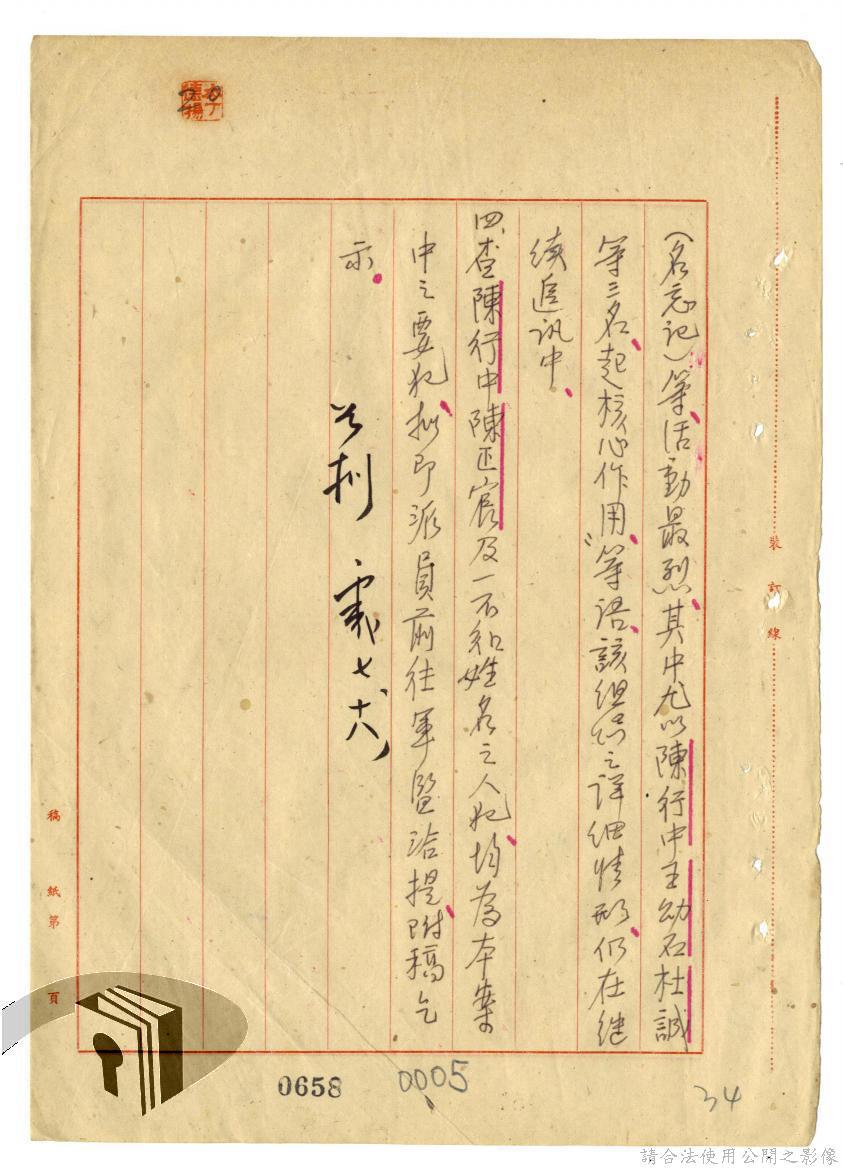 (名忘記)等、活動最烈、其中尤以陳行中王幼石杜誠
等三名、起核心作用、”等語、該組織之詳細情形、仍在继
续追訊中、
四、查陳行中陳正宸及一不知姓名之人犯、均為本案
中之要犯、拟即派員前往軍監洽提、附稿乞
示。
七、十八
裝訂線
稿紙第 頁
0658
0005
34
請合法使用公開之影像